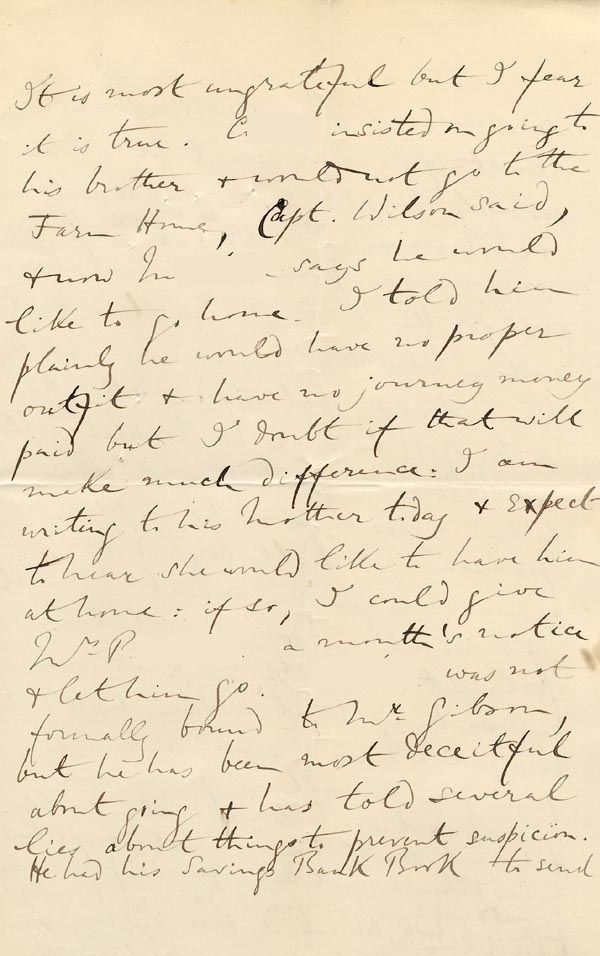 It is most ungrateful but I fear
it is true. G insisted on going to
his brother & would not go to the
Farm Home, Capt. Wilson said,
& now says he would
like to go home. I told him
plainly he would have no proper
outfit & have no journey money
paid but I doubt if that will
make much difference: I am
writing to his Mother today & expect
to hear she would like to have him
at home: if so, I could give
Mrs P a month's notice
& let him go. was not
formally bound to Mr. Gibson,
but he has been most deceitful
about going & has told several
lies about things to prevent suspicion.
He had his Savings Bank Book to send